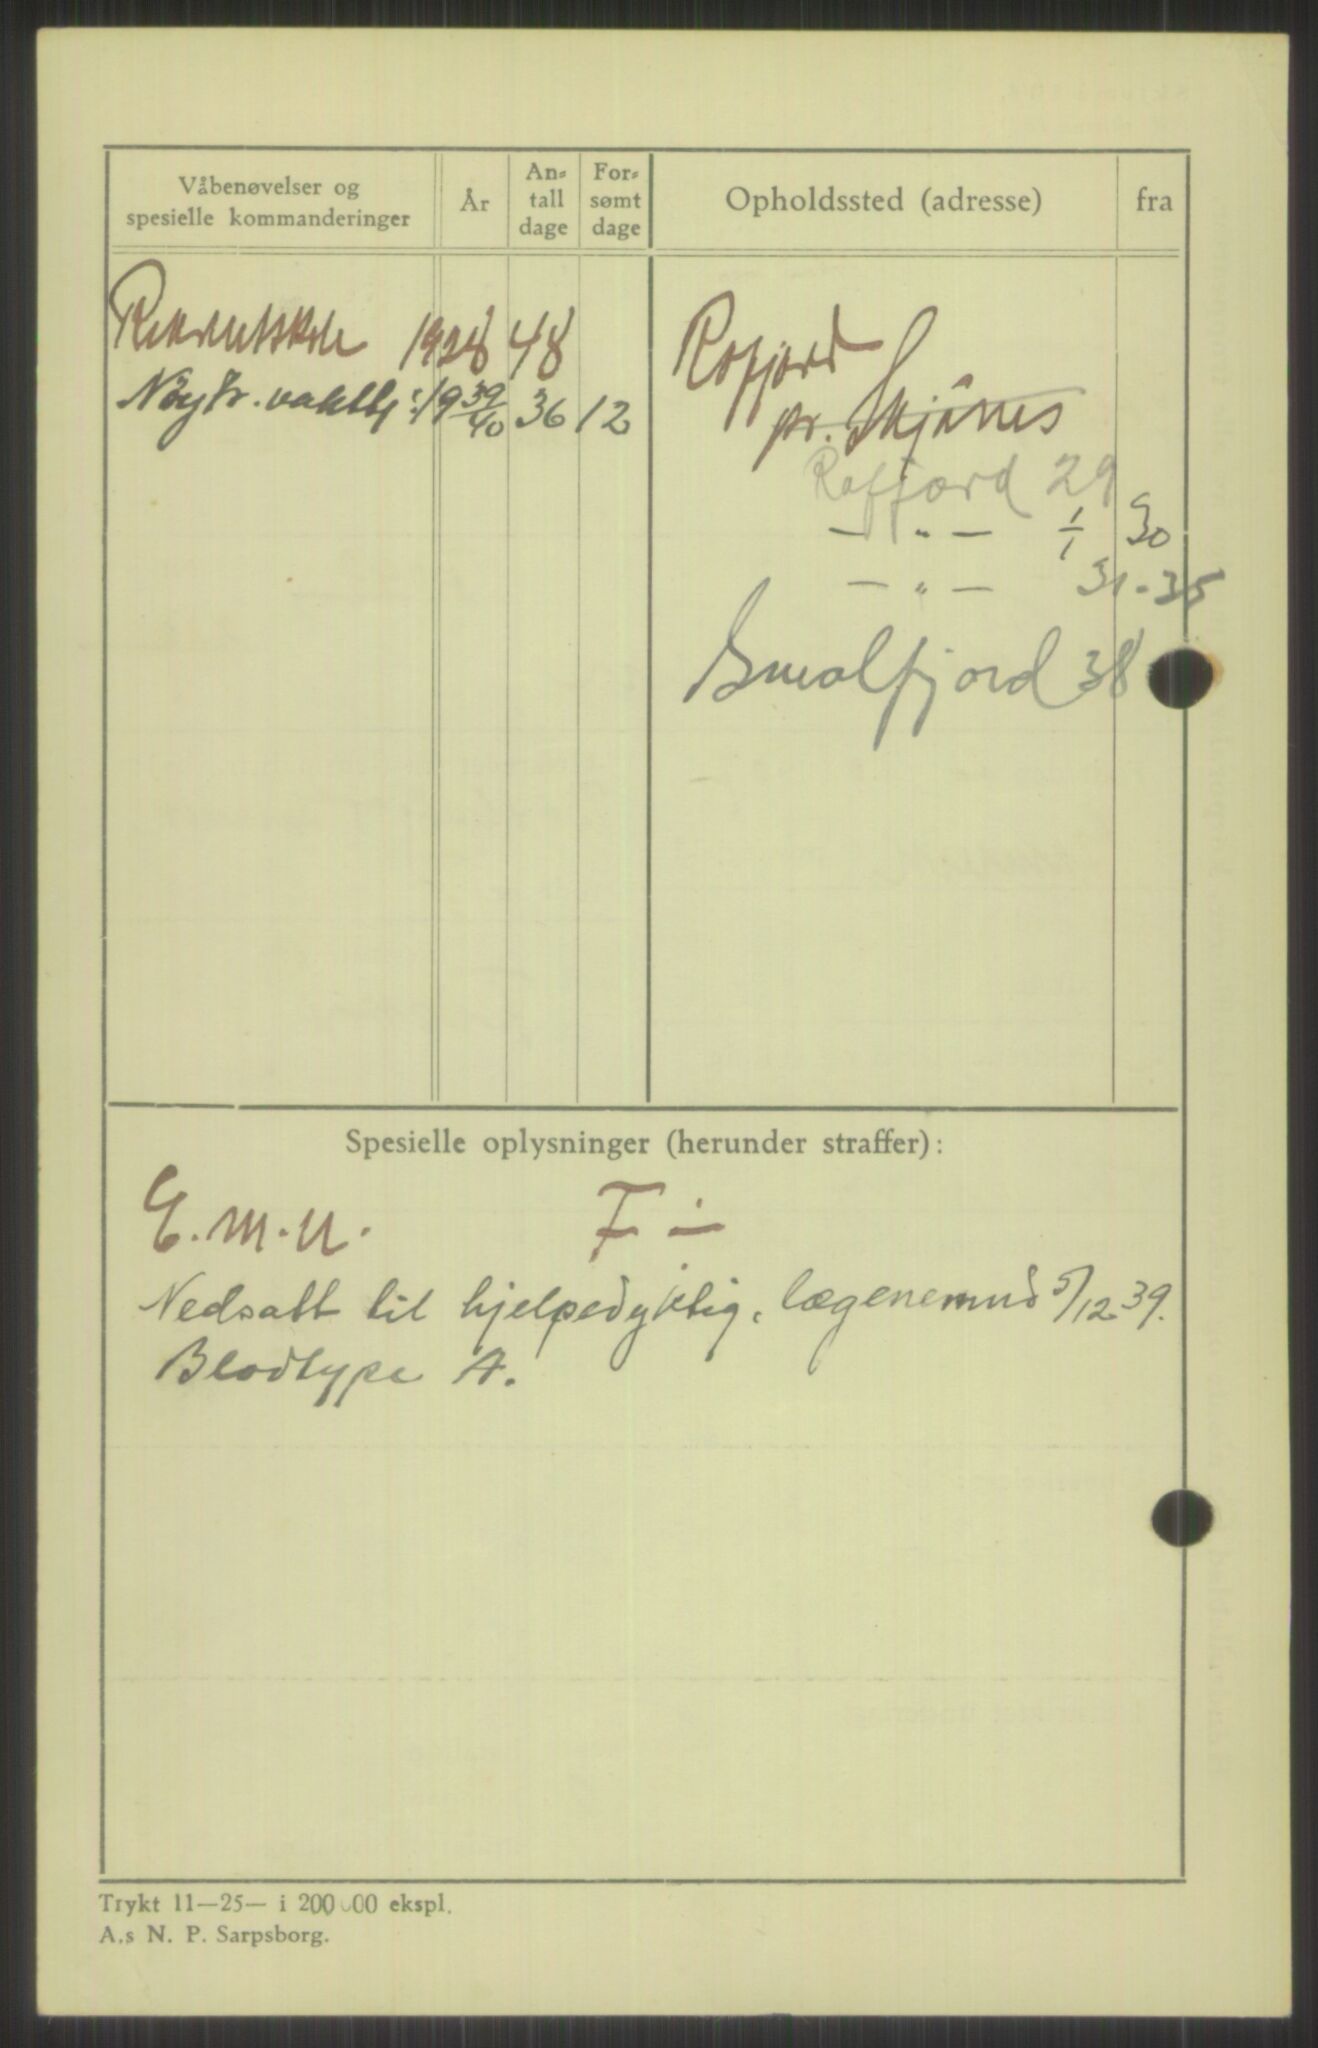 Våbenøvelser og spesielle kommanderinger | År | An-tall dage | For-sømt dage | Opholdssted (adresse) | fra
Rekruttskole 1928 48
Nøytr. vakttj: 1939/40 36 12
Rafjord
pr. Skjånes
Rafjord 29
— " — 1/1 30
— " — 31-35
Smalfjord 38
Spesielle oplysninger (herunder straffer):
E.M.U. F ÷
Nedsatt til hjelpedyktig, lægenemnd 5/12 39.
Blodtype A.
Trykt 11—25— i 200 000 ekspl.
A.s N. P. Sarpsborg.